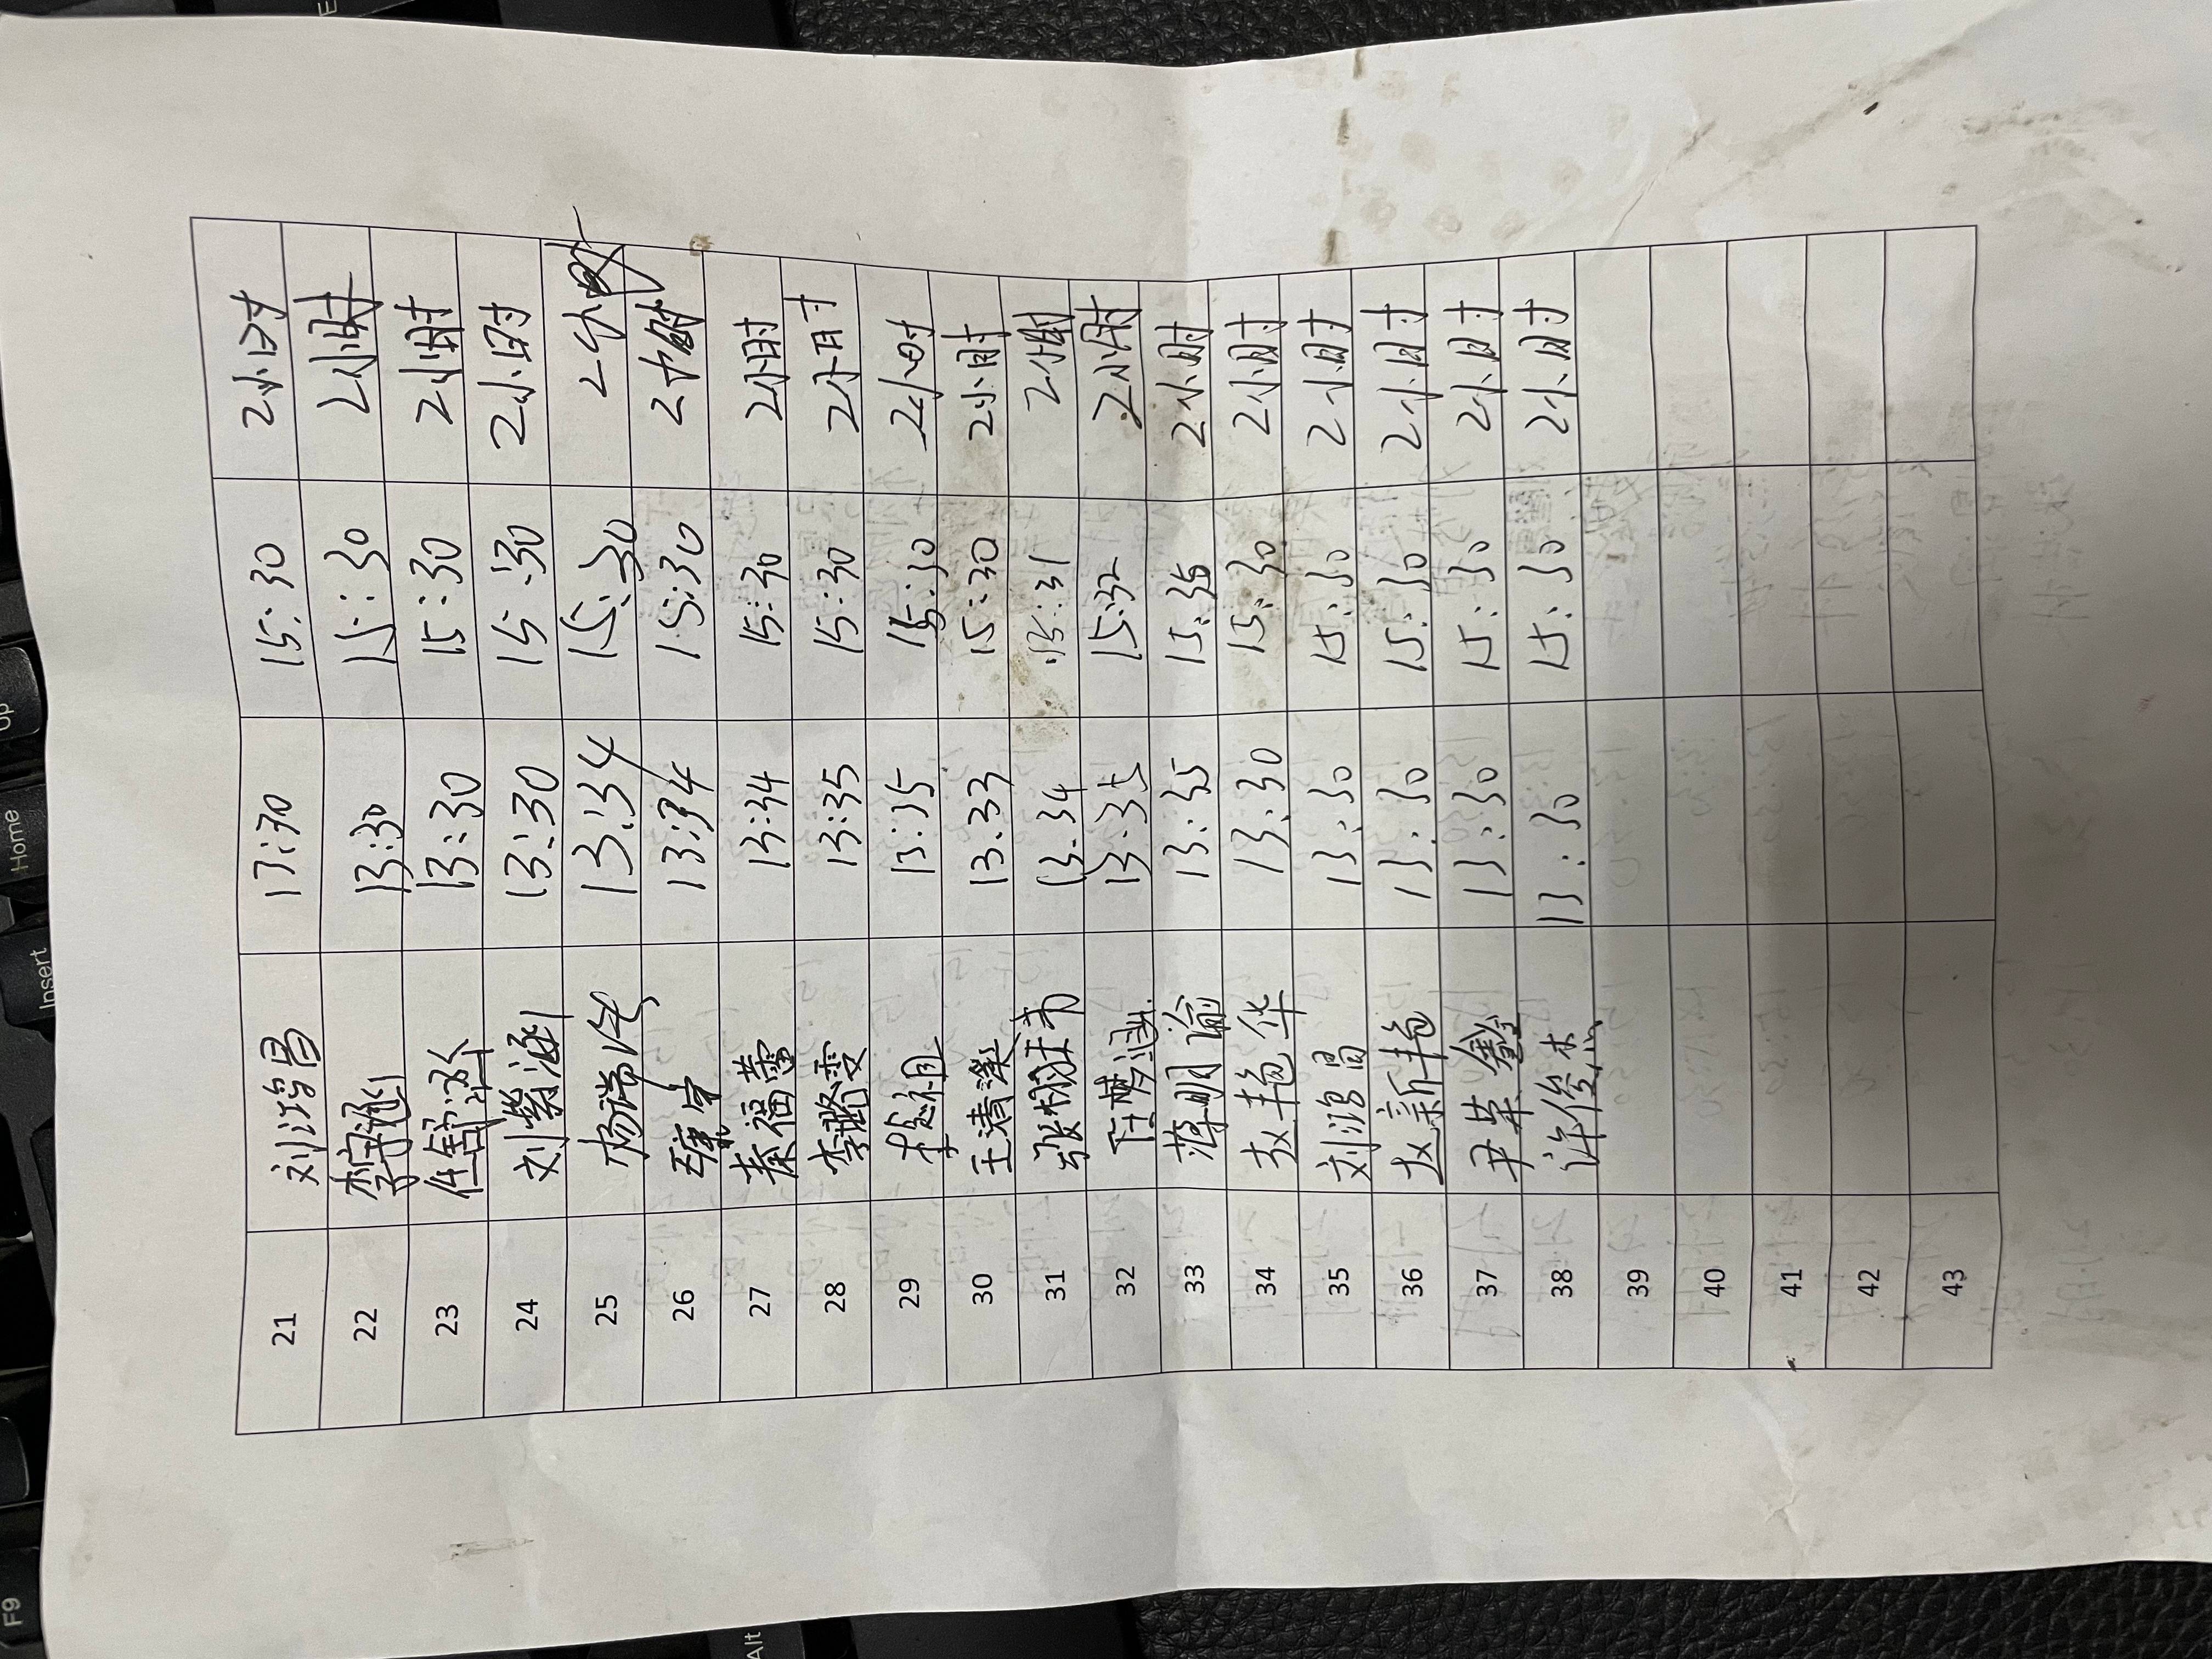 21 刘鸿昌 13:30 15:30 2小时
22 李涵 13:30 15:30 2小时
23 任 13:30 15:30 2小时
24 刘紫涵 13:30 15:30 2小时
25 杨瑞 13:34 15:30 2小时
26 13:34 15:30 2小时
27 秦福蕾 13:34 15:30 2小时
28 李雯 13:35 15:30 2小时
29 13:35 15:30 2小时
30 王清漢 13.33 15:30 2小时
31 张 13.34 15:31 2小时
32 任博涵 13:35 15:32 2小时
33 薄明谕 13:35 15:35 2小时
34 赵艳华 13:30 15:30 2小时
35 刘鸿昌 13:30 15:30 2小时
36 赵新艳 13:30 15:30 2小时
37 尹荣鑫 13:30 15:30 2小时
38 许俊杰 13:30 15:30 2小时
39
40
41
42
43
Up
Home
Insert
F9
Alt